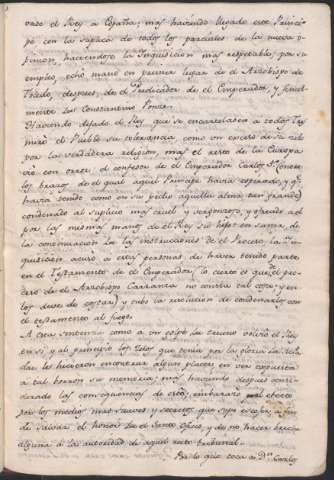 vase el Rey a España; mas haviendo llegado este Princi-
pe con la sospecha de todos los parciales de la nueva o-
pinion, haciendose la Inquisicion mas respetable, por su
empleo, echo mano en primer lugar de el Arzobispo de
Toledo, despues, de el Predicador de el Emperador, y final-
mente los Constantino Ponce.
Haviendo dejado el Rey que se encarcelasen a todos tres
miro el Pueblo su tolerancia como un exceso de su zelo
por la verdadera religion, mas el resto de la Europa
vio con orror, el confesor de el Emperador Carlos 5.º en cu-
los brazos de el qual aquel Principe havia espirado, y q.
havia tenido como en su pecho aquella alma tan grande
condenado al suplicio mas cruel y vergonzoso, y esto
por las mismas manos de el Rey su hijo: en suma, de
la continuacion de las instrucciones de el Proceso, la In-
quisicion acusó a estas personas de haver tenido parte
en el Testamento de el Emperador, lo cierto es que de el pro-
ceso de el Arzobispo Carranza no consta tal cosa y en
los dos se costan y tubo la resolucion de condenarlos con
el testamento al fuego.
A esta sentencia como a un golpe de trueno volvio el Rey
en si, y al principio los zelos que tenia por la gloria de su Pa-
dre le hicieron encontrar algun placer en ver expuesta
a tal borron su memoria; mas haviendo despues consi-
derado las consequencias de esto, embarazo el efecto
por los medios mas suaves y secretos que supo escojer, a fin
de salvar el honor de el Santo Oficio, y de no hacer brecha
alguna a la autoridad de aquel recto tribunal.
Por lo que toca a D.n Carlos